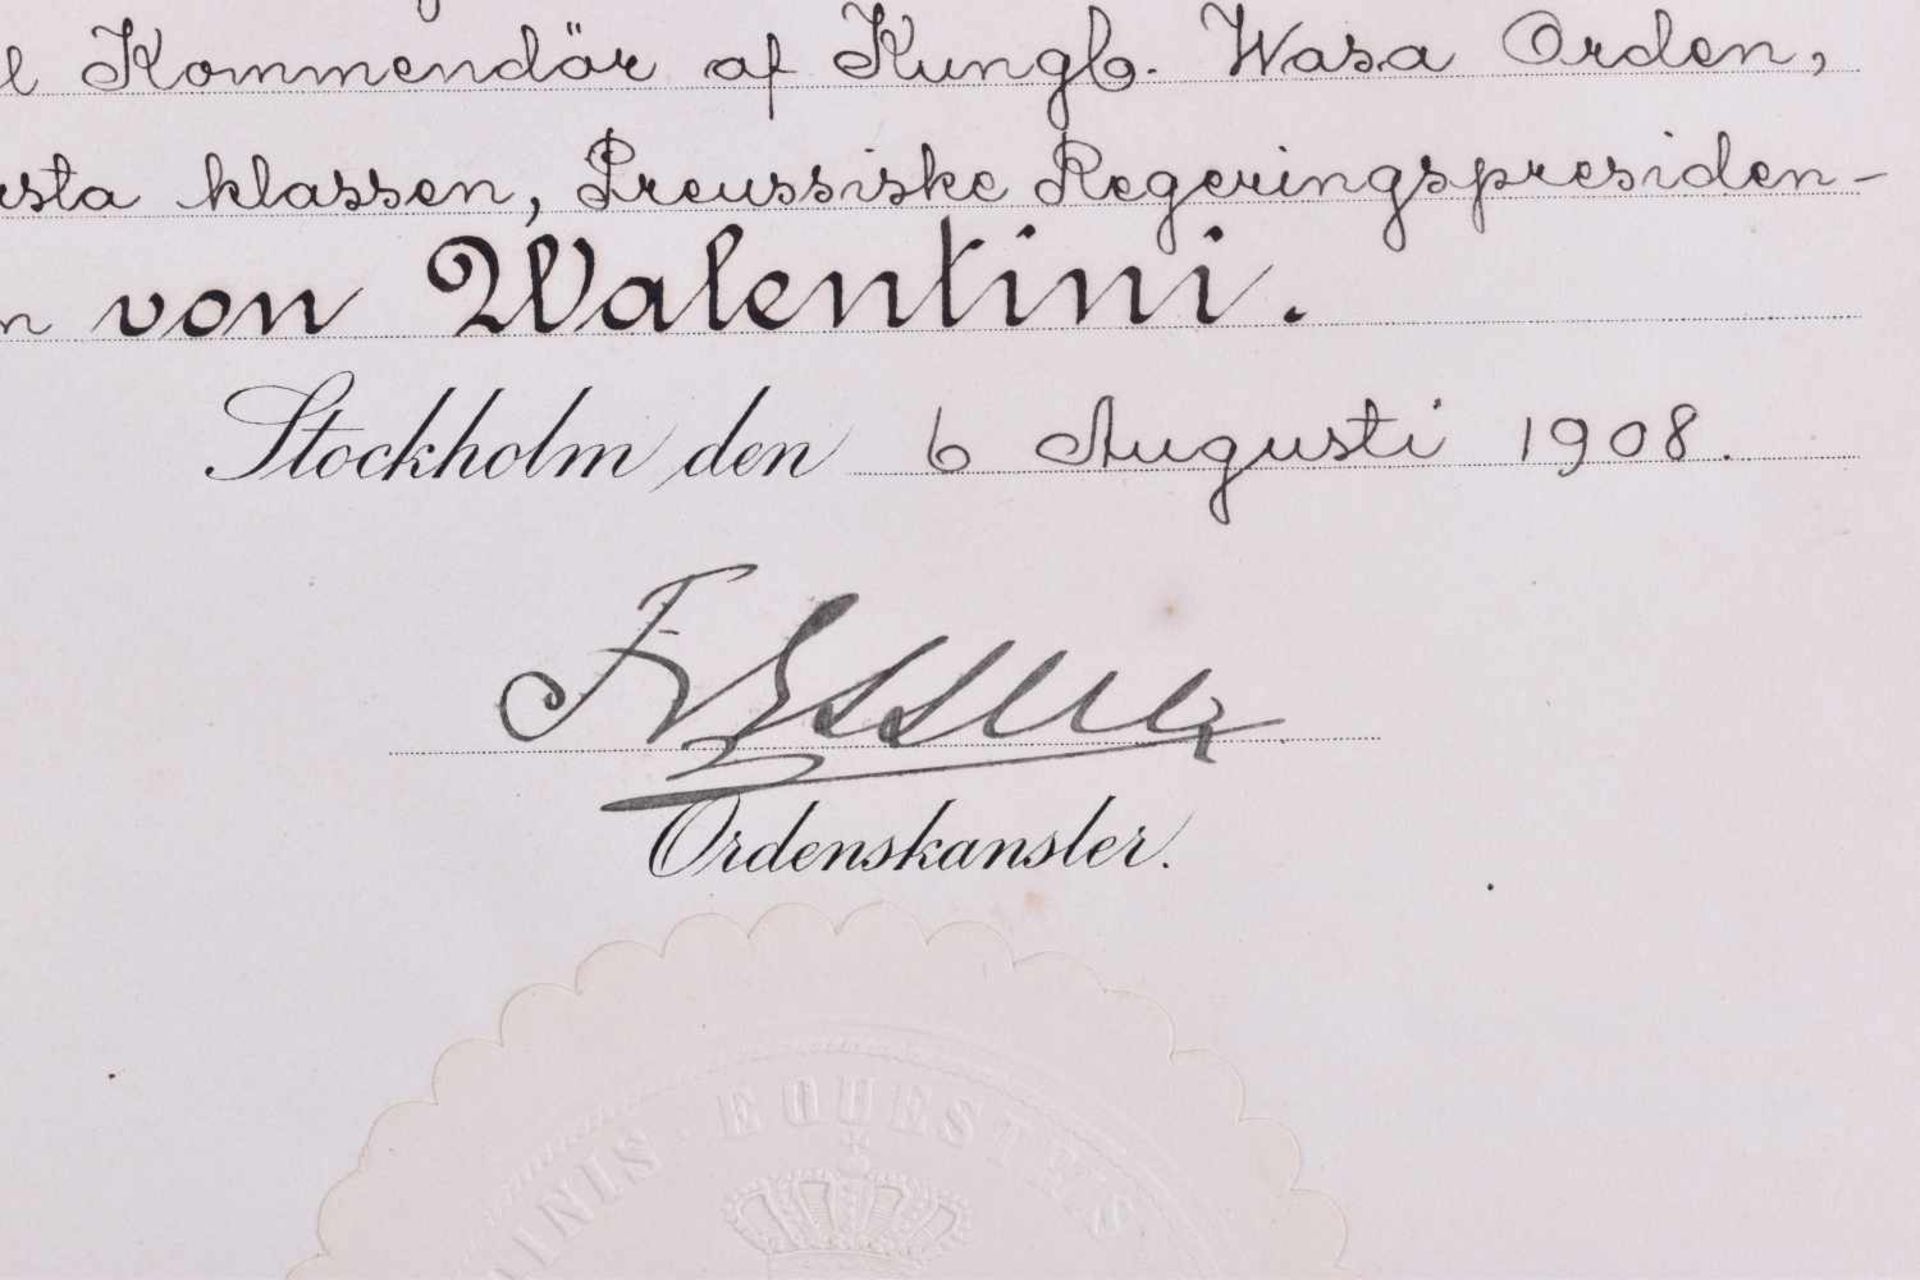 l Kommendör af Kungl. Wasa Orden,
rsta klassen, Preussiske Regeringspresiden-
n von Valentini.
Stockholm den 6 Augusti 1908.
Ordenskansler.
ANIS · EQUESTRIS